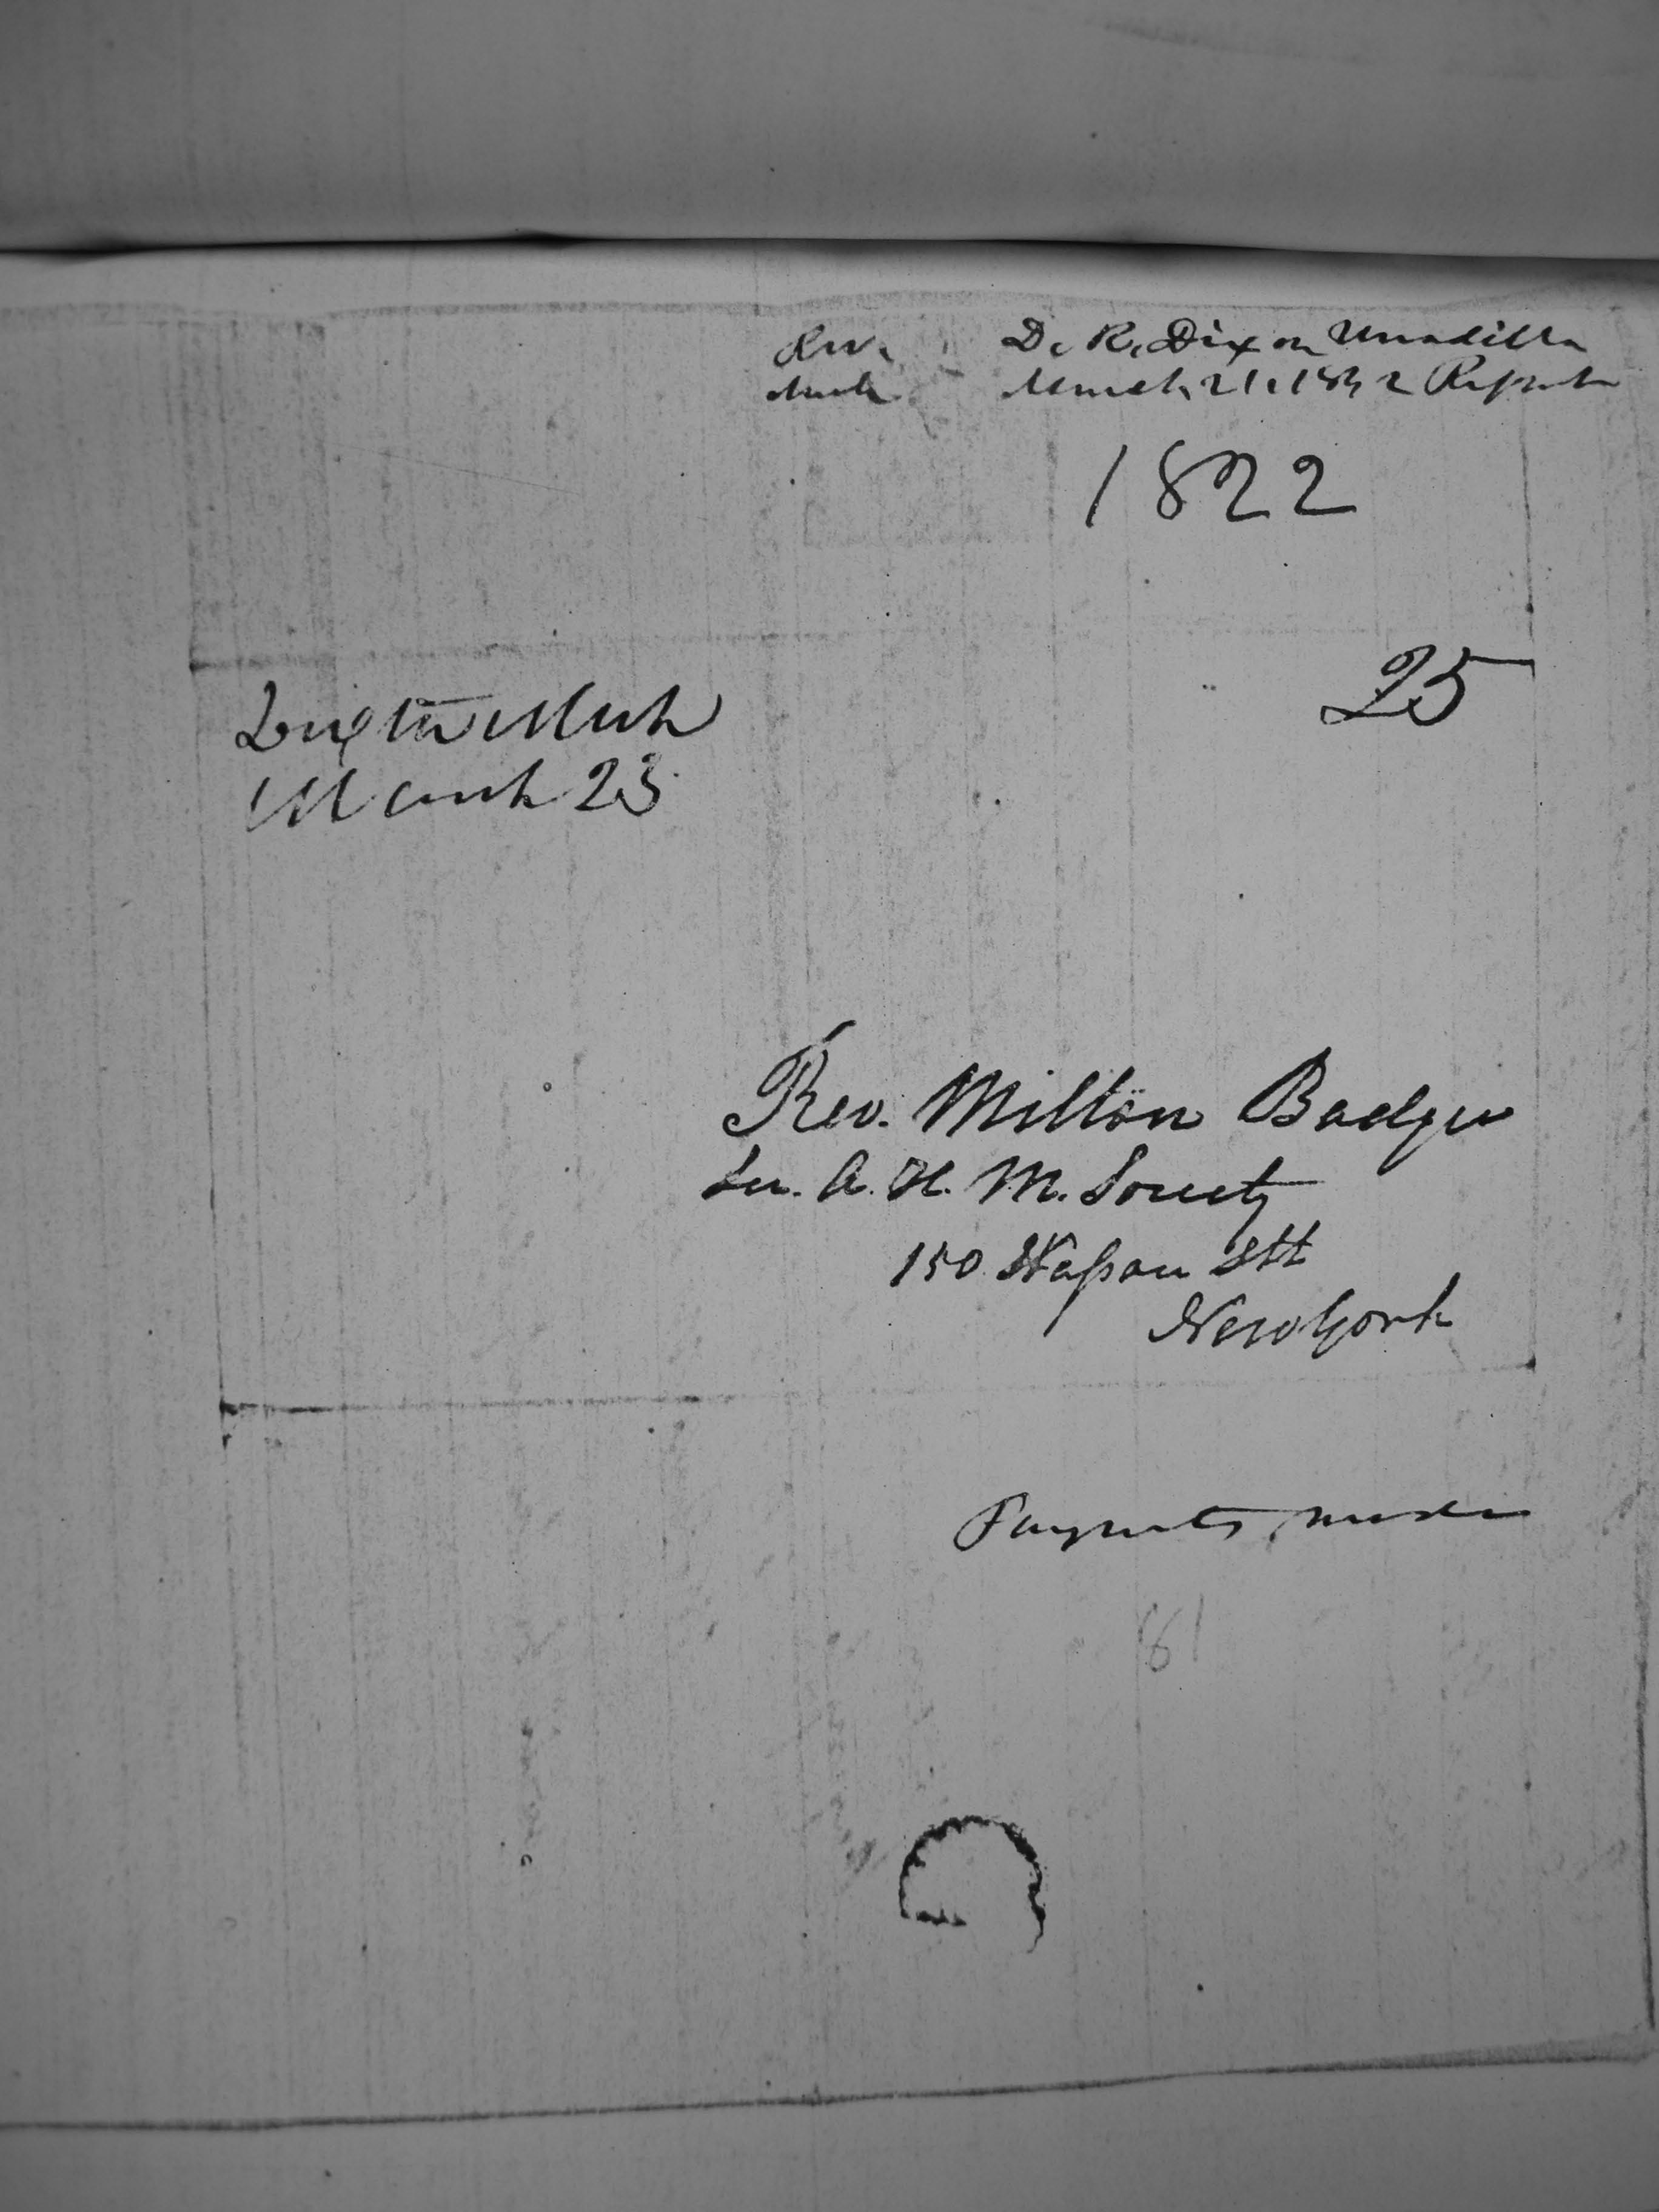 Rev. D. R. Dixon Unadilla
Mich March 21, 1842 Report
1822
25
Dexter Mich
March 23
Rev. Milton Badger
Sec. A. H. M. Society
150 Nassau Stt
New York
Payments, made